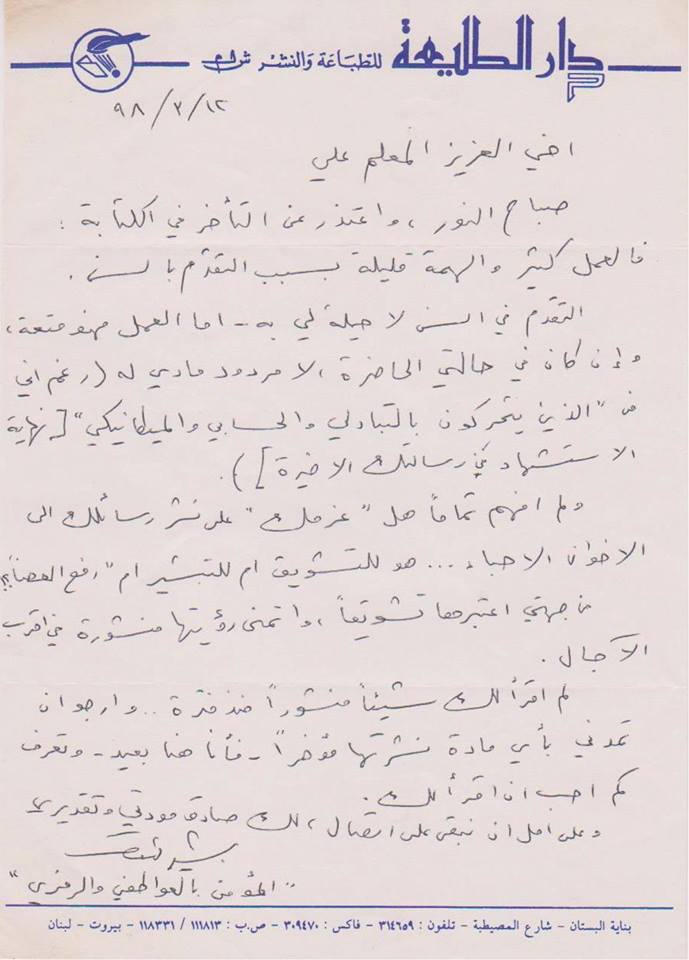 دار الطليعة للطباعة والنشر ش م م
٩٨/٣/١٢
اخي العزيز المعلم علي
صباح النور، واعتذر عن التأخر في الكتابة :
فالعمل كثير والهمة قليلة بسبب التقدّم بالسن .
التقدّم في السن لا حيلة لي به – اما العمل فهو متعة،
وإن كان في حالتي الحاضرة، لا مردود مادي له (رغم اني
من "الذين يتحركون بالتبادلي والحسابي والميكانيكي" [نهاية
الاستشهاد في رسالتك الاخيرة]).
ولم افهم تماماً هل "عزمك" على نشر رسائلك الى
الاخوان الاحباء ... هو للتشويق ام للتبشير ام "رفع العصا"؟!
من جهتي اعتبرها تشويقاً، واتمنى رؤيتها منشورة في اقرب
الآجال .
لم اقرأ لك شيئاً منشوراً منذ فترة .. وارجو ان
تمدني بأي مادة نشرتها مؤخراً – فأنا هنا بعيد – وتعرف
كم احب ان اقرأ لك .
وعلى امل ان نبقى على اتصال، لك صادق مودتي وتقديري
بشير
"المؤمن بالعواطفي والرمزي"
بناية البستان - شارع المصيطبة - تلفون : ٣١٤٦٥٩ - فاكس : ٣٠٩٤٧٠ - ص.ب : ١١١٨١٣ / ١١٨٣٣١ - بيروت - لبنان